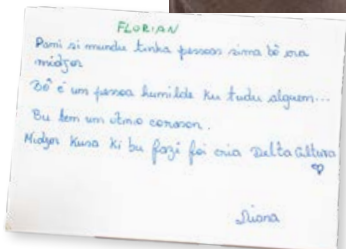 FLORIAN
Pami si mundu tinha pessoas sima bô era
midjor
Bô é um pessoa humilde ku tudu alguem...
Bu tem um otmo corason.
Midjor kusa ki bu fazi foi cria Delta Cultura
Diana